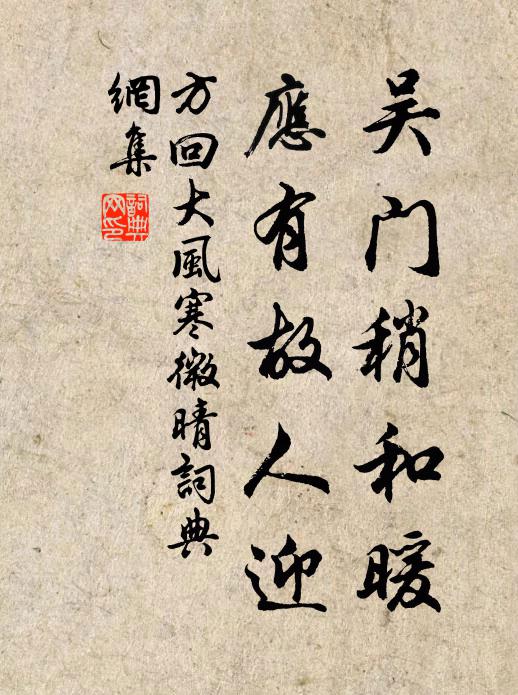 吴門稍和暖
應有故人迎
方回大風寒微晴詞典
網集
詞典
网印